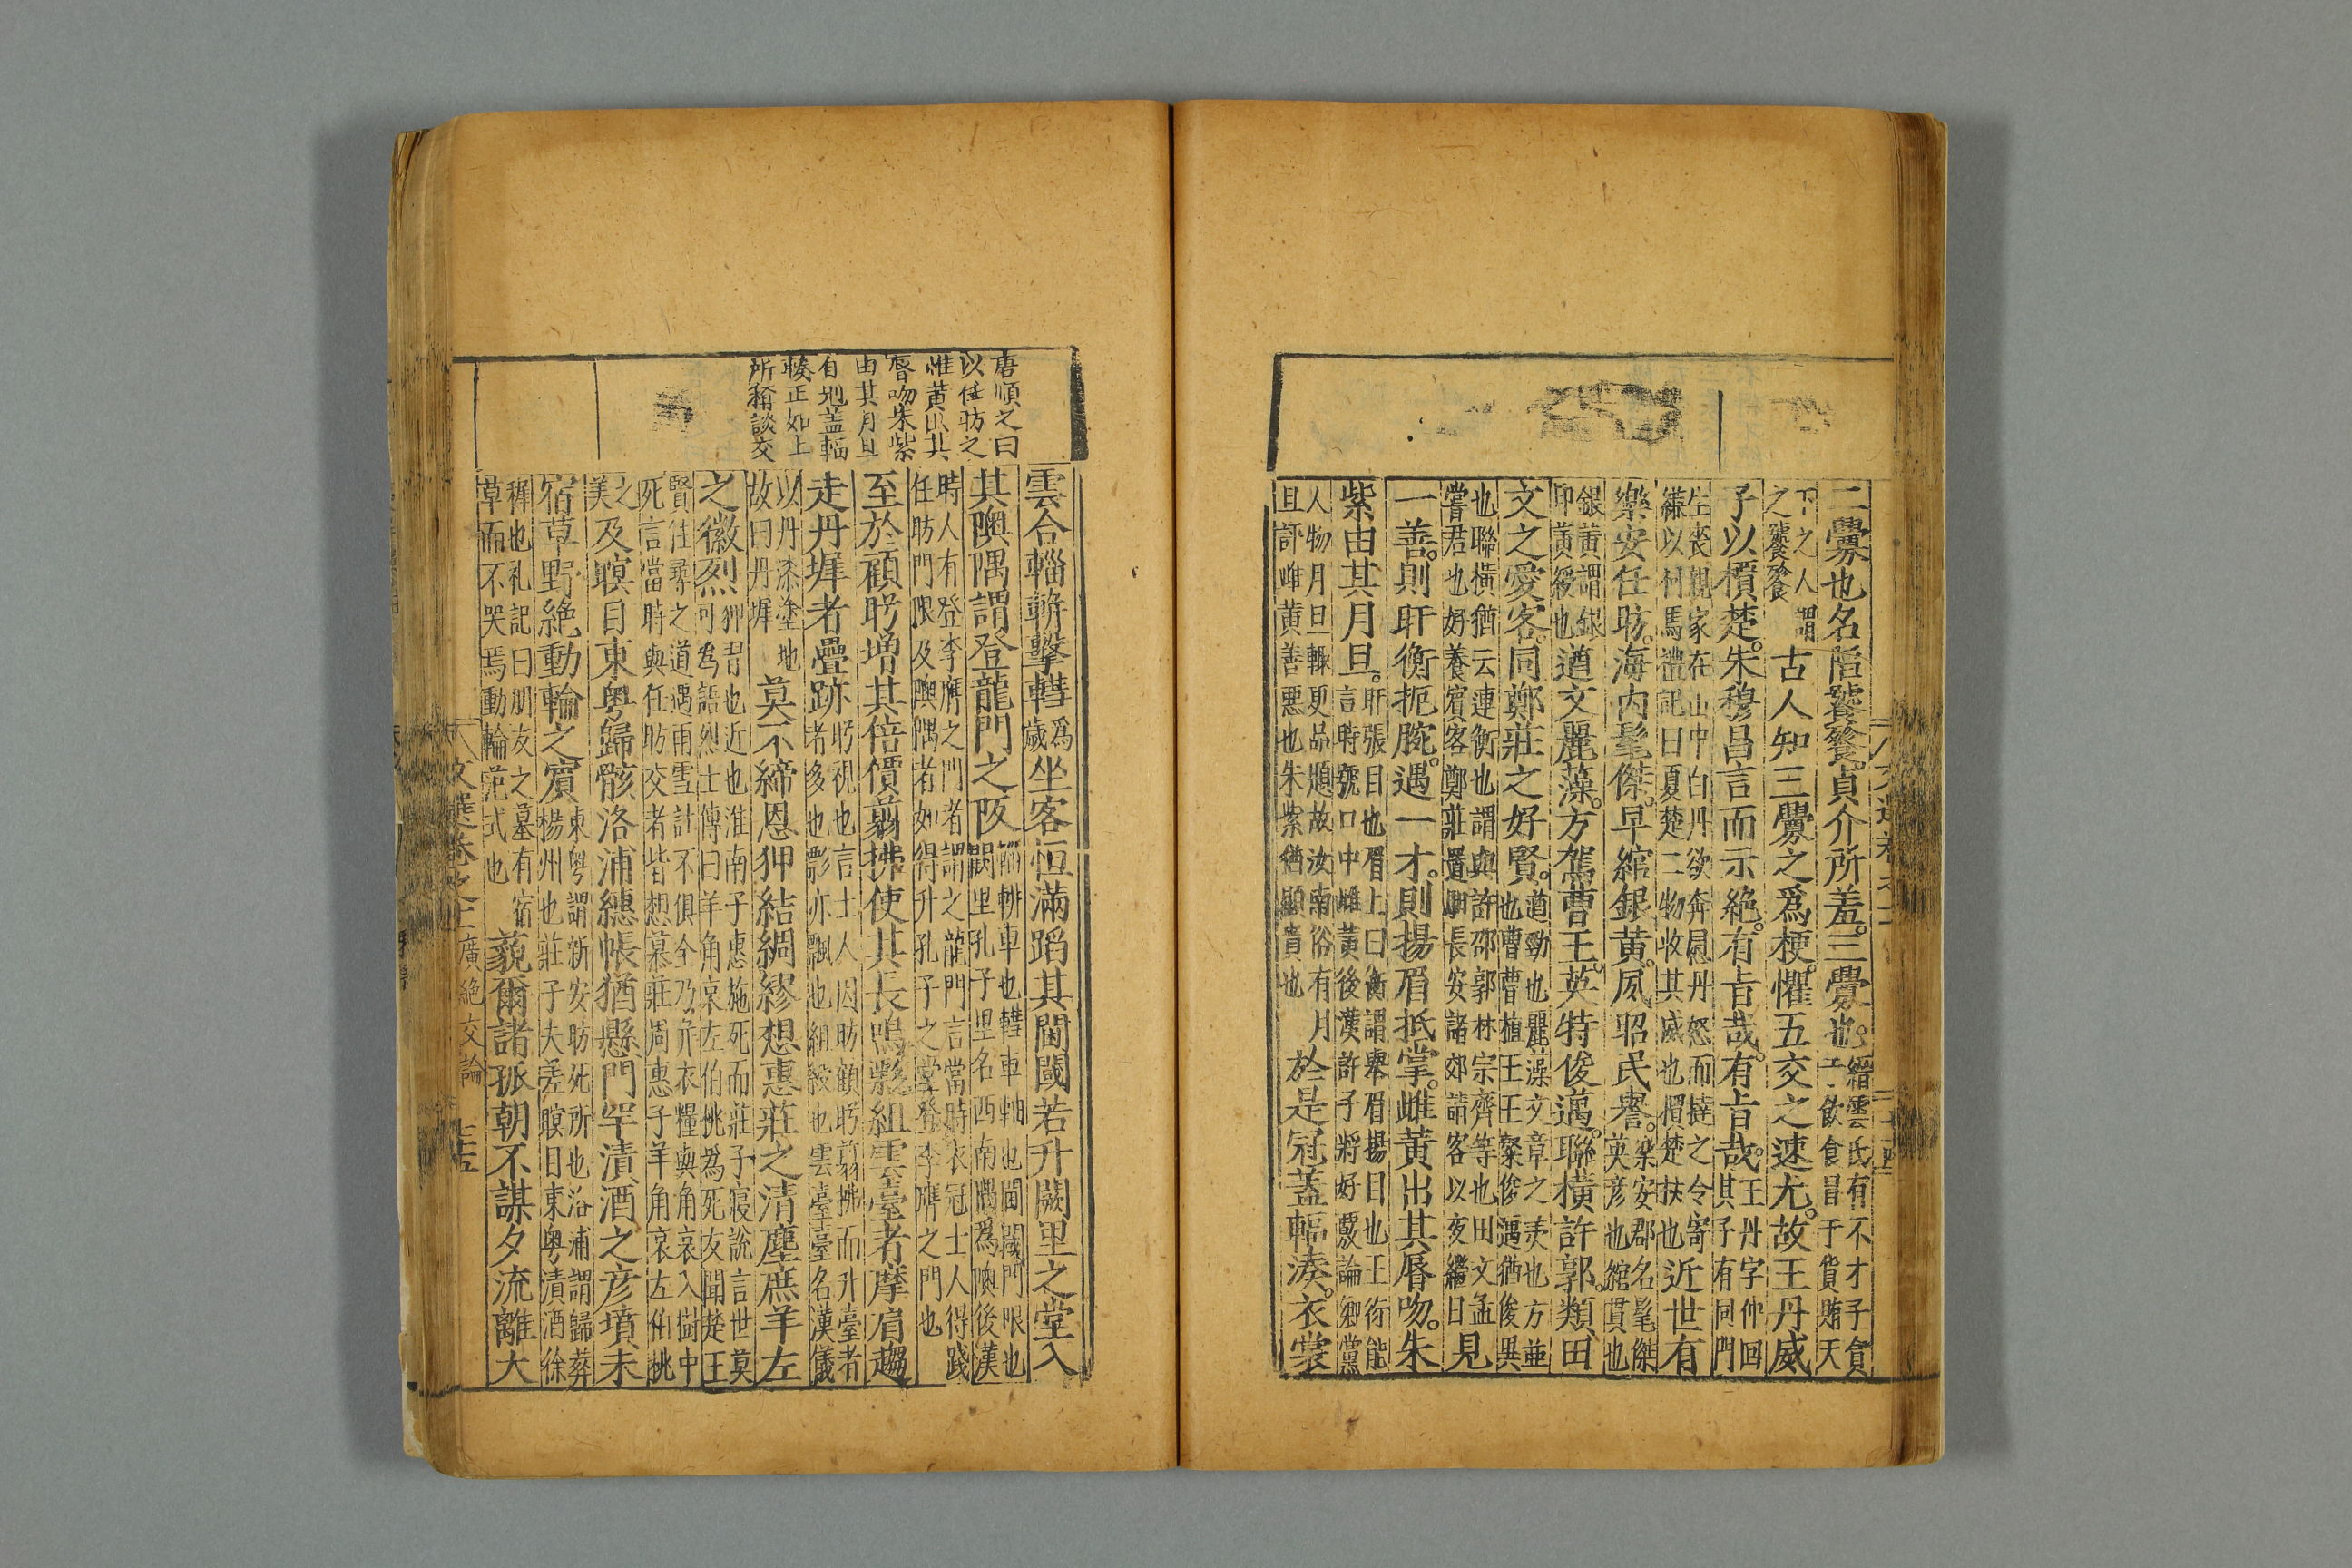 二釁也名陷饕餮。貞介所羞。三釁也。
縉雲氏有不才子貪
于飲食冒于貨賄天
下之人謂
之饕餮
古人知三釁之爲梗。懼五交之速尤。故王丹威
子以檟楚。朱穆昌言而示絶。有旨哉。有旨哉。
王丹字仲回
其子有同門
生喪親家在山中白丹欲奔慰丹怒而撻之令寄
縑以祠焉禮記曰夏楚二物收其威也檟楚扶也
近世有
樂安任昉。海内髦傑。早綰銀黄。夙昭民譽。
樂安郡名髦傑
英彦也綰貫也
銀黄謂銀
印黄綬也
遒文麗藻。方駕曹王。英特俊邁。聯横許郭。類田
文之愛客。同鄭莊之好賢。
遒勁也麗藻文章之美也方並
也曹曹植王王粲俊邁猶俊異
也聯横猶云連衡也謂與許邵郭林宗齊等也田文孟
嘗君也好養賓客鄭莊置驛長安諸郊請客以夜繼日
見
一善。則盱衡扼腕。遇一才。則揚眉抵掌。雌黄出其脣吻。朱
紫由其月旦。
盱張目也眉上曰衡謂舉眉揚目也王衍能
言時號口中雌黄後漢許子將好覈論鄉黨
人物月旦輒更品題故汝南俗有月
旦評雌黄善惡也朱紫猶顯貴也
於是冠蓋輻湊。衣裳
唐順之曰
以任昉之
惟黄出其
脣吻朱紫
由其月旦
有冠蓋輻
輳正如上
所稱談交
雲合輜軿擊轊
爲
歲
坐客恒滿蹈其閫閾若升闕里之堂入
其隩隅謂登龍門之阪
輜軿車也轊車軸也閫閾門限也
闕里孔子里名西南隅爲隩後漢
時人有登李膺之門者謂之龍門言當時衣冠士人得踐
任昉門限及隩隅者如得升孔子之堂登李膺之門也
至於顧眄増其倍價翦拂使其長鳴影組雲臺者摩肩趨
走丹墀者疊跡
眄視也言士人因昉顧眄翦拂而升臺者
者多也影亦飄也組綬也雲臺臺名漢儀
以丹漆塗地
故曰丹墀
莫不締恩狎結綢繆想惠莊之清塵庶羊左
之徽烈
狎習也近也淮南子惠施死而莊子寢說言世莫
可為語烈士傳曰羊角哀左伯桃為死友聞楚王
賢往尋之道遇雨雪計不俱全乃并衣糧與角哀入樹中
死言當時與任昉交者皆想慕莊周惠子羊角哀左伯桃
之
美
及瞑目東粤歸骸洛浦繐帳猶懸門罕漬酒之彦墳未
宿草野絶動輪之賓
東粤謂新安昉死所也洛浦謂歸葬
楊州也莊子夫差瞑目東粤漬酒徐
穉也礼記曰朋友之墓有宿
草而不哭焉動輪范式也
藐爾諸孤朝不謀夕流離大
文選卷之
廣絶交論
七五